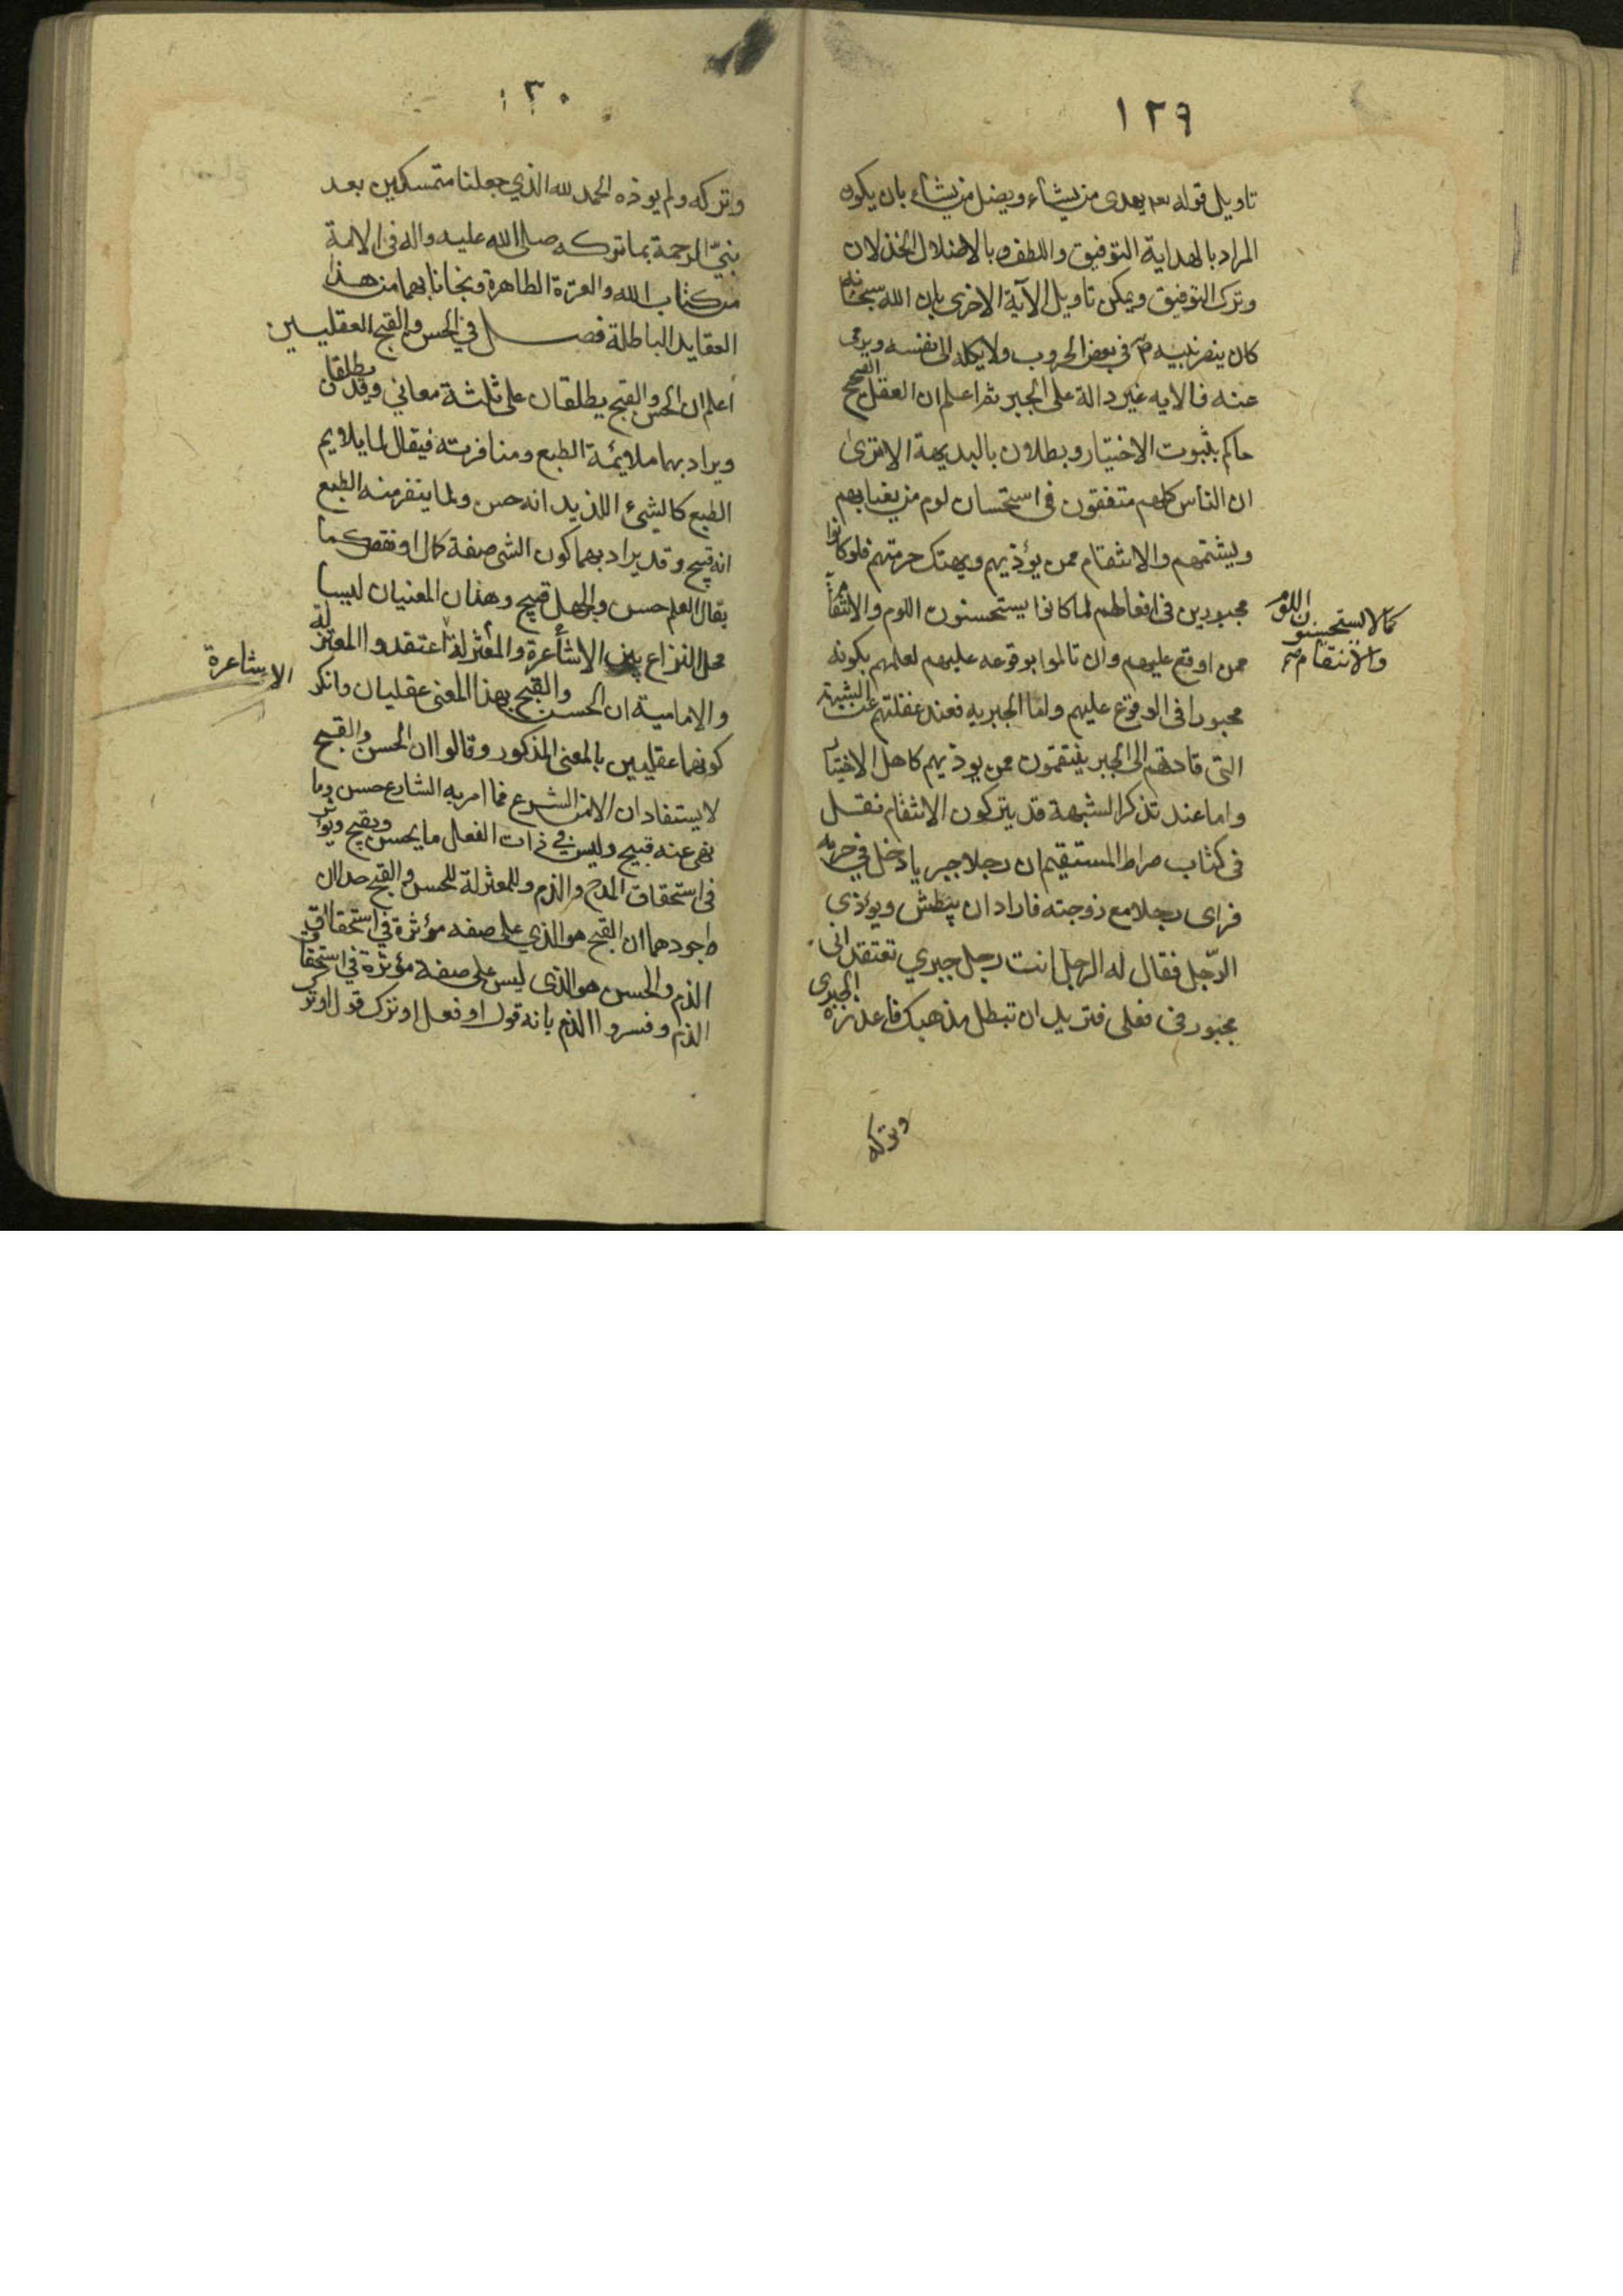 ١٢٩
تاويل قوله تعم يهدى من يشاء ويضل من يشاء بان يكون
المراد بالهداية التوفيق واللطف وبالاضلال الخذلان
وترك التوفيق ويمكن تاويل الآية الاخرى بان الله سبحانه
كان ينصر نبيه ص في بعض الحروب ولا يكله الى نفسه ويرمى
عنه فالايه غير دالة على الجبر ثم اعلم ان العقل الصحيح
حاكم بثبوت الاختيار وبطلان بالبديهة الا ترى
ان الناس كلهم متفقون في استحسان لوم من يغتابهم
ويشتمهم والانتقام ممن يؤذيهم ويهتك حرمتهم فلو كانوا
مجبورين في افعالهم لما كانوا يستحسنون اللوم والانتقام
كما لا يستحسنون اللوم
والانتقام صح
ممن اوقع عليهم وان تالموا بوقوعه عليهم لعلمهم بكونه
مجبورا في الوقوع عليهم واما الجبريه فعند غفلتهم عن الشبهة
التى قادتهم الى الجبر ينتقمون ممن يوذيهم كاهل الاختيار
واما عند تذكر الشبهة قد يتركون الانتقام نقل
في كتاب صراط المستقيم ان رجلا جبريا دخل في حرمه
فراى رجلا مع زوجته فاراد ان يبطش ويؤذي
الرّجل فقال له الرجل انت رجل جبري تعتقد انى
مجبور في فعلى فتريد ان تبطل مذهبك فاعذره الجبرى
وتركه
١٣٠
وتركه ولم يوذه الحمد لله الذي جعلنا متمسكين بعد
نبيّ الرحمة بما تركه صلى الله عليه واله في الامة
من كتاب الله والعترة الطاهرة ونجانا بهما من هذه
العقايد الباطلة فصل في الحسن والقبح العقليين
اعلم ان الحسن والقبح يطلقان على ثلثة معاني وقد يطلقان
ويراد بهما ملايمة الطبع ومنافرته فيقال لما يلايم
الطبع كالشئ اللذيد انه حسن ولما ينفر منه الطبع
انه قبيح وقد يراد بهما كون الشى صفة كمال او نقص كما
يقال العلم حسن والجهل قبيح وهذان المعنيان ليسا
محل النزاع بين الاشاعرة والمعتزلة اعتقدوا المعتزلة
والامامية ان الحسن والقبح بهذا المعنى عقليان وانكر
الاشاعرة
كونهما عقليين بالمعنى المذكور وقالوا ان الحسن والقبح
لا يستفادان الا من الشرع فما امر به الشارع حسن وما
نهى عنه قبيح وليس في ذات الفعل ما يحسن ويقبح ويؤثر
في استحقاق المدح والذم وللمعتزلة للحسن والقبح حدان
واجودهما ان القبح هو الذي على صفه مؤثرة في استحقاق
الذم والحسن هو الذى ليس على صفة مؤثرة في استحقاق
الذم وفسروا الذم بانه قول او فعل او ترك قول او تر